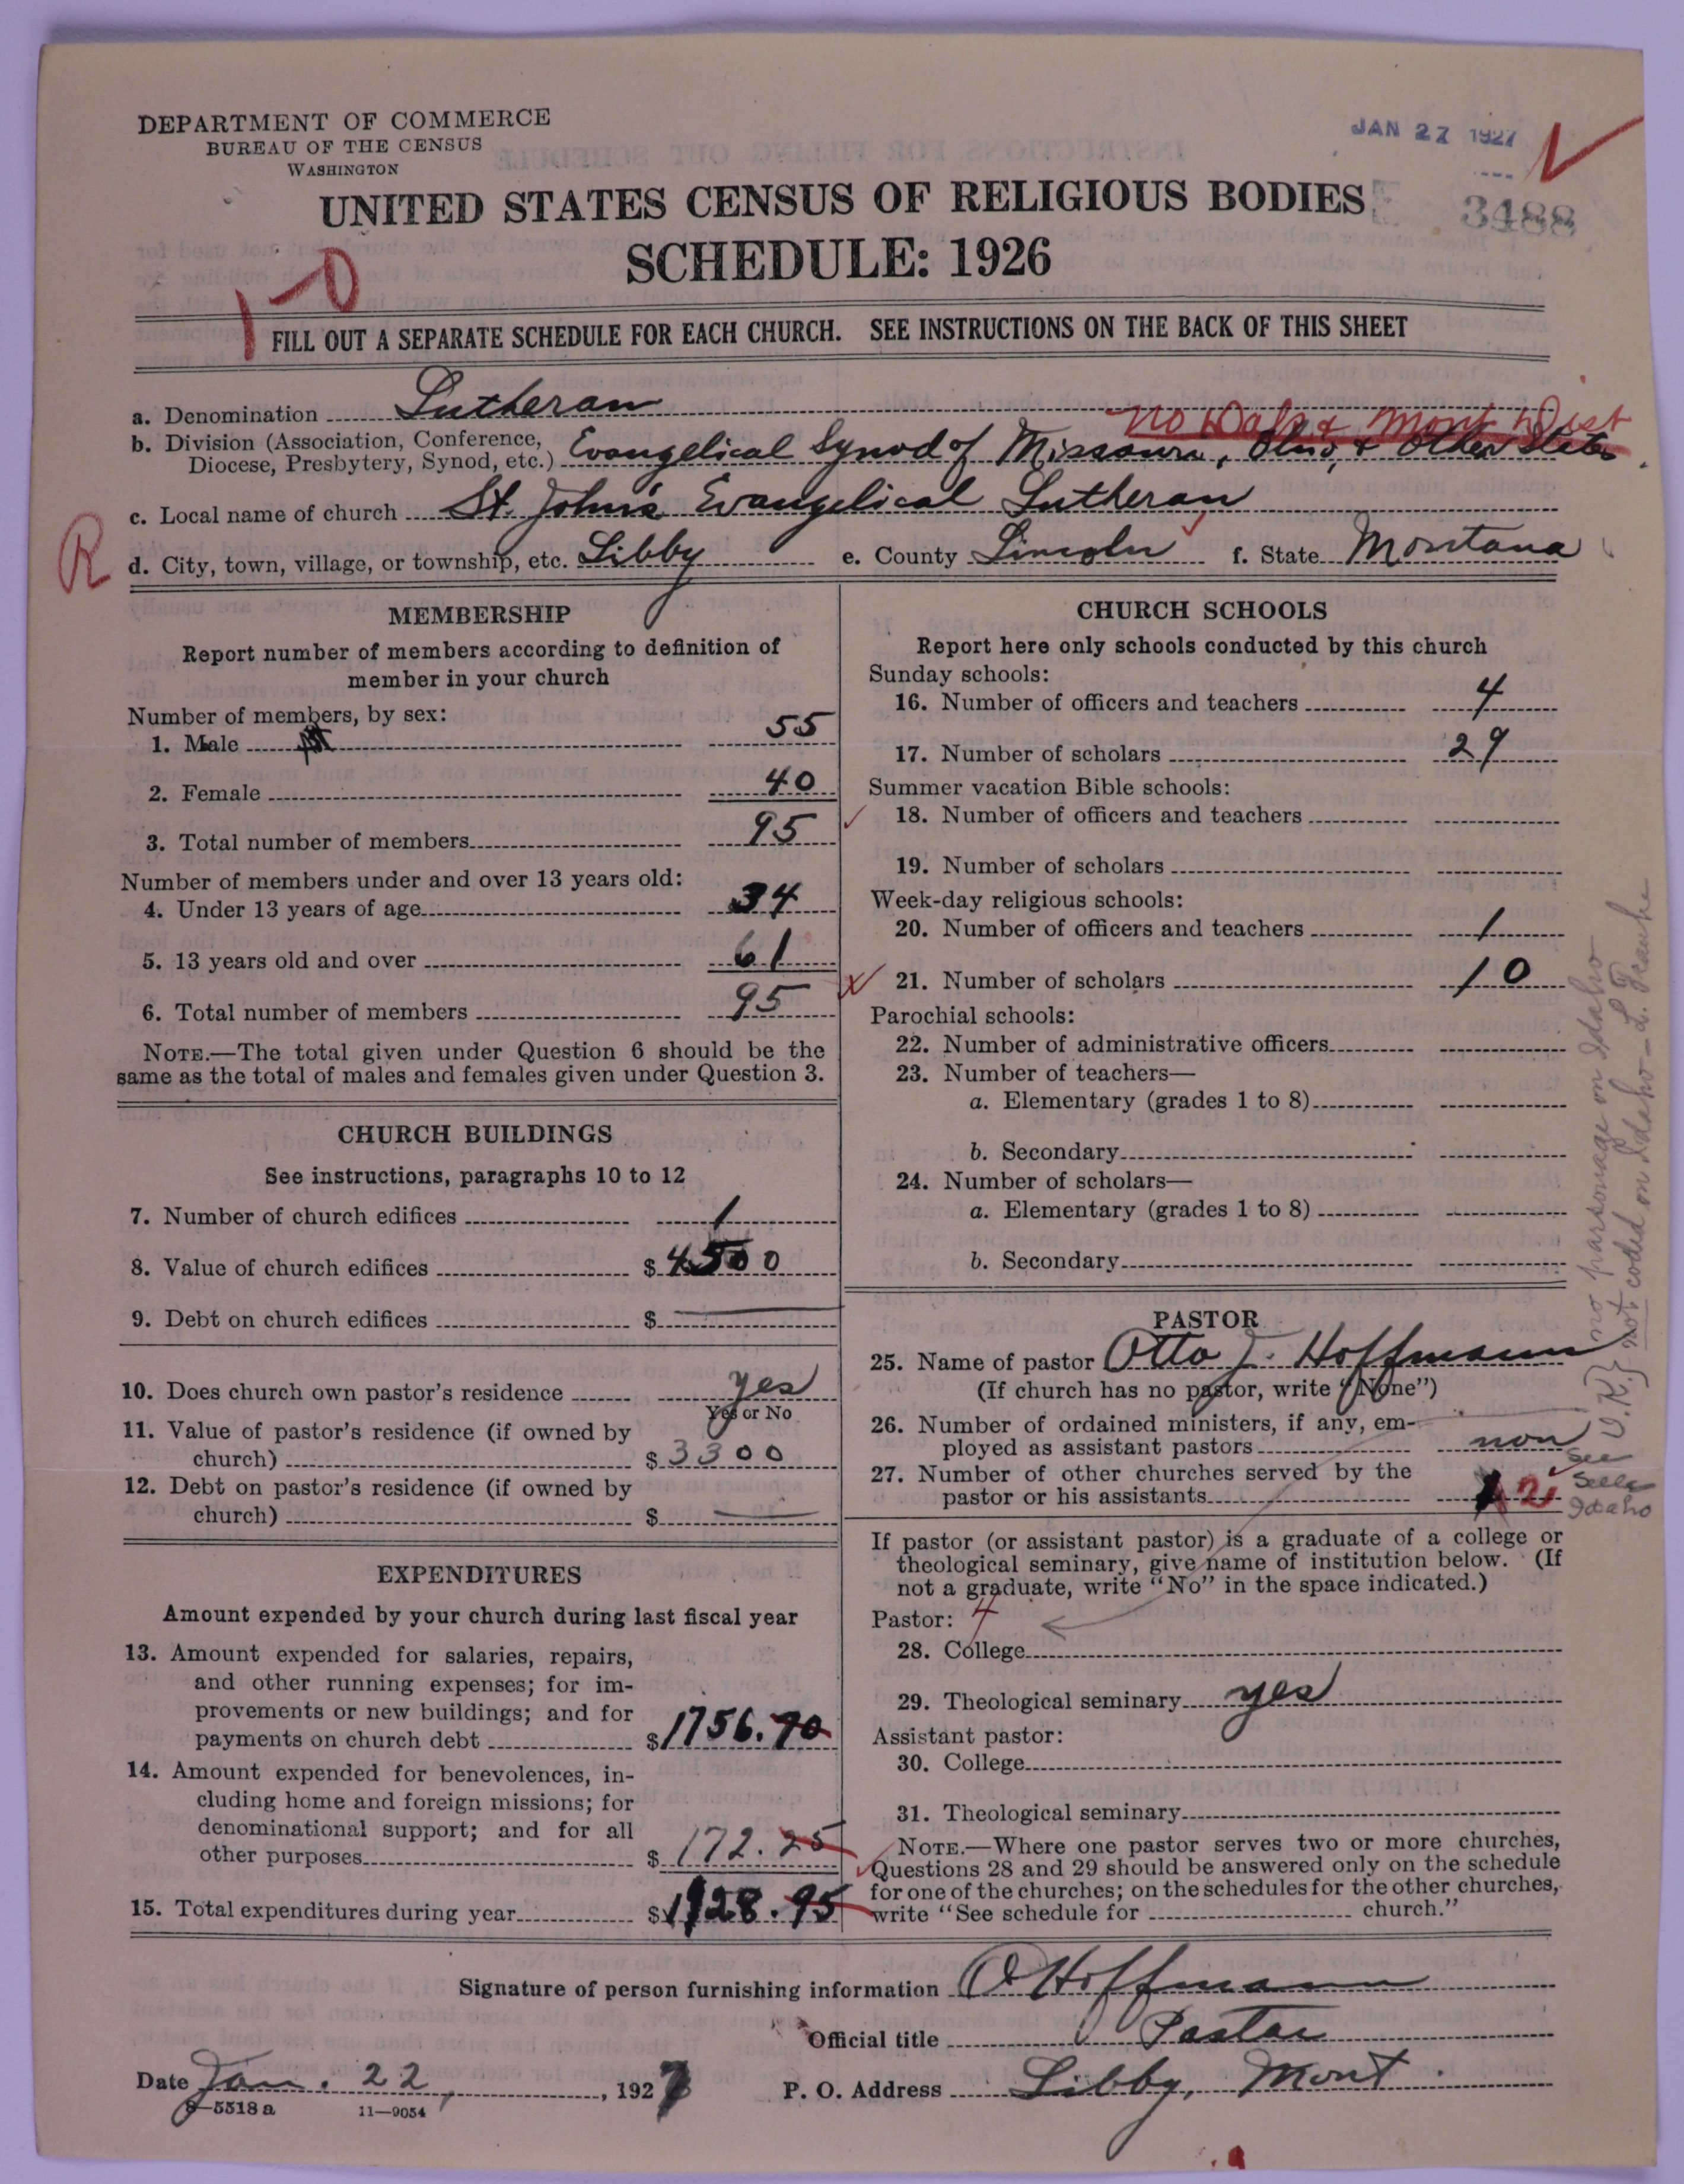 DEPARTMENT OF COMMERCE
BUREAU OF THE CENSUS
WASHINGTON
JAN 27 1927
3488
UNITED STATES CENSUS OF RELIGIOUS BODIES
SCHEDULE: 1926
1-0
FILL OUT A SEPARATE SCHEDULE FOR EACH CHURCH. SEE INSTRUCTIONS ON THE BACK OF THIS SHEET
a. Denomination Lutheran
No Dak & Mont Dist
b. Division (Association, Conference,
Diocese, Presbytery, Synod, etc.) Evangelical Synod of Missouri, Ohio, & Other States.
c. Local name of church St. John's Evangelical Lutheran
R
d. City, town, village, or township, etc. Libby e. County Lincoln f. State Montana
MEMBERSHIP
Report number of members according to definition of
member in your church
Number of members, by sex:
1. Male 55
2. Female 40
3. Total number of members 95
Number of members under and over 13 years old:
4. Under 13 years of age 34
5. 13 years old and over 61
6. Total number of members 95
NOTE.—The total given under Question 6 should be the
same as the total of males and females given under Question 3.
CHURCH BUILDINGS
See instructions, paragraphs 10 to 12
7. Number of church edifices 1
8. Value of church edifices $ 4500
9. Debt on church edifices $ —
10. Does church own pastor's residence yes
Yes or No
11. Value of pastor's residence (if owned by
church) $ 3300
12. Debt on pastor's residence (if owned by
church) $ —
EXPENDITURES
Amount expended by your church during last fiscal year
13. Amount expended for salaries, repairs,
and other running expenses; for im-
provements or new buildings; and for
payments on church debt $ 1756.70
14. Amount expended for benevolences, in-
cluding home and foreign missions; for
denominational support; and for all
other purposes $ 172.25
15. Total expenditures during year $ 1928.95
CHURCH SCHOOLS
Report here only schools conducted by this church
Sunday schools:
16. Number of officers and teachers 4
17. Number of scholars 29
Summer vacation Bible schools:
18. Number of officers and teachers
19. Number of scholars
Week-day religious schools:
20. Number of officers and teachers 1
21. Number of scholars 10
Parochial schools:
22. Number of administrative officers
23. Number of teachers—
a. Elementary (grades 1 to 8)
b. Secondary
24. Number of scholars—
a. Elementary (grades 1 to 8)
b. Secondary
PASTOR
25. Name of pastor Otto J. Hoffmann
(If church has no pastor, write "None")
26. Number of ordained ministers, if any, em-
ployed as assistant pastors non
27. Number of other churches served by the
pastor or his assistants 2
see
Idaho
O.K.} no parsonage on Idaho
not coded on Idaho – L. Franke
If pastor (or assistant pastor) is a graduate of a college or
theological seminary, give name of institution below. (If
not a graduate, write "No" in the space indicated.)
Pastor: 4
28. College
29. Theological seminary yes
Assistant pastor:
30. College
31. Theological seminary
NOTE.—Where one pastor serves two or more churches,
Questions 28 and 29 should be answered only on the schedule
for one of the churches; on the schedules for the other churches,
write "See schedule for church."
Signature of person furnishing information O Hoffmann
Official title Pastor
Date Jan. 22, 1927 P. O. Address Libby, Mont.
8—5518 a 11—9054